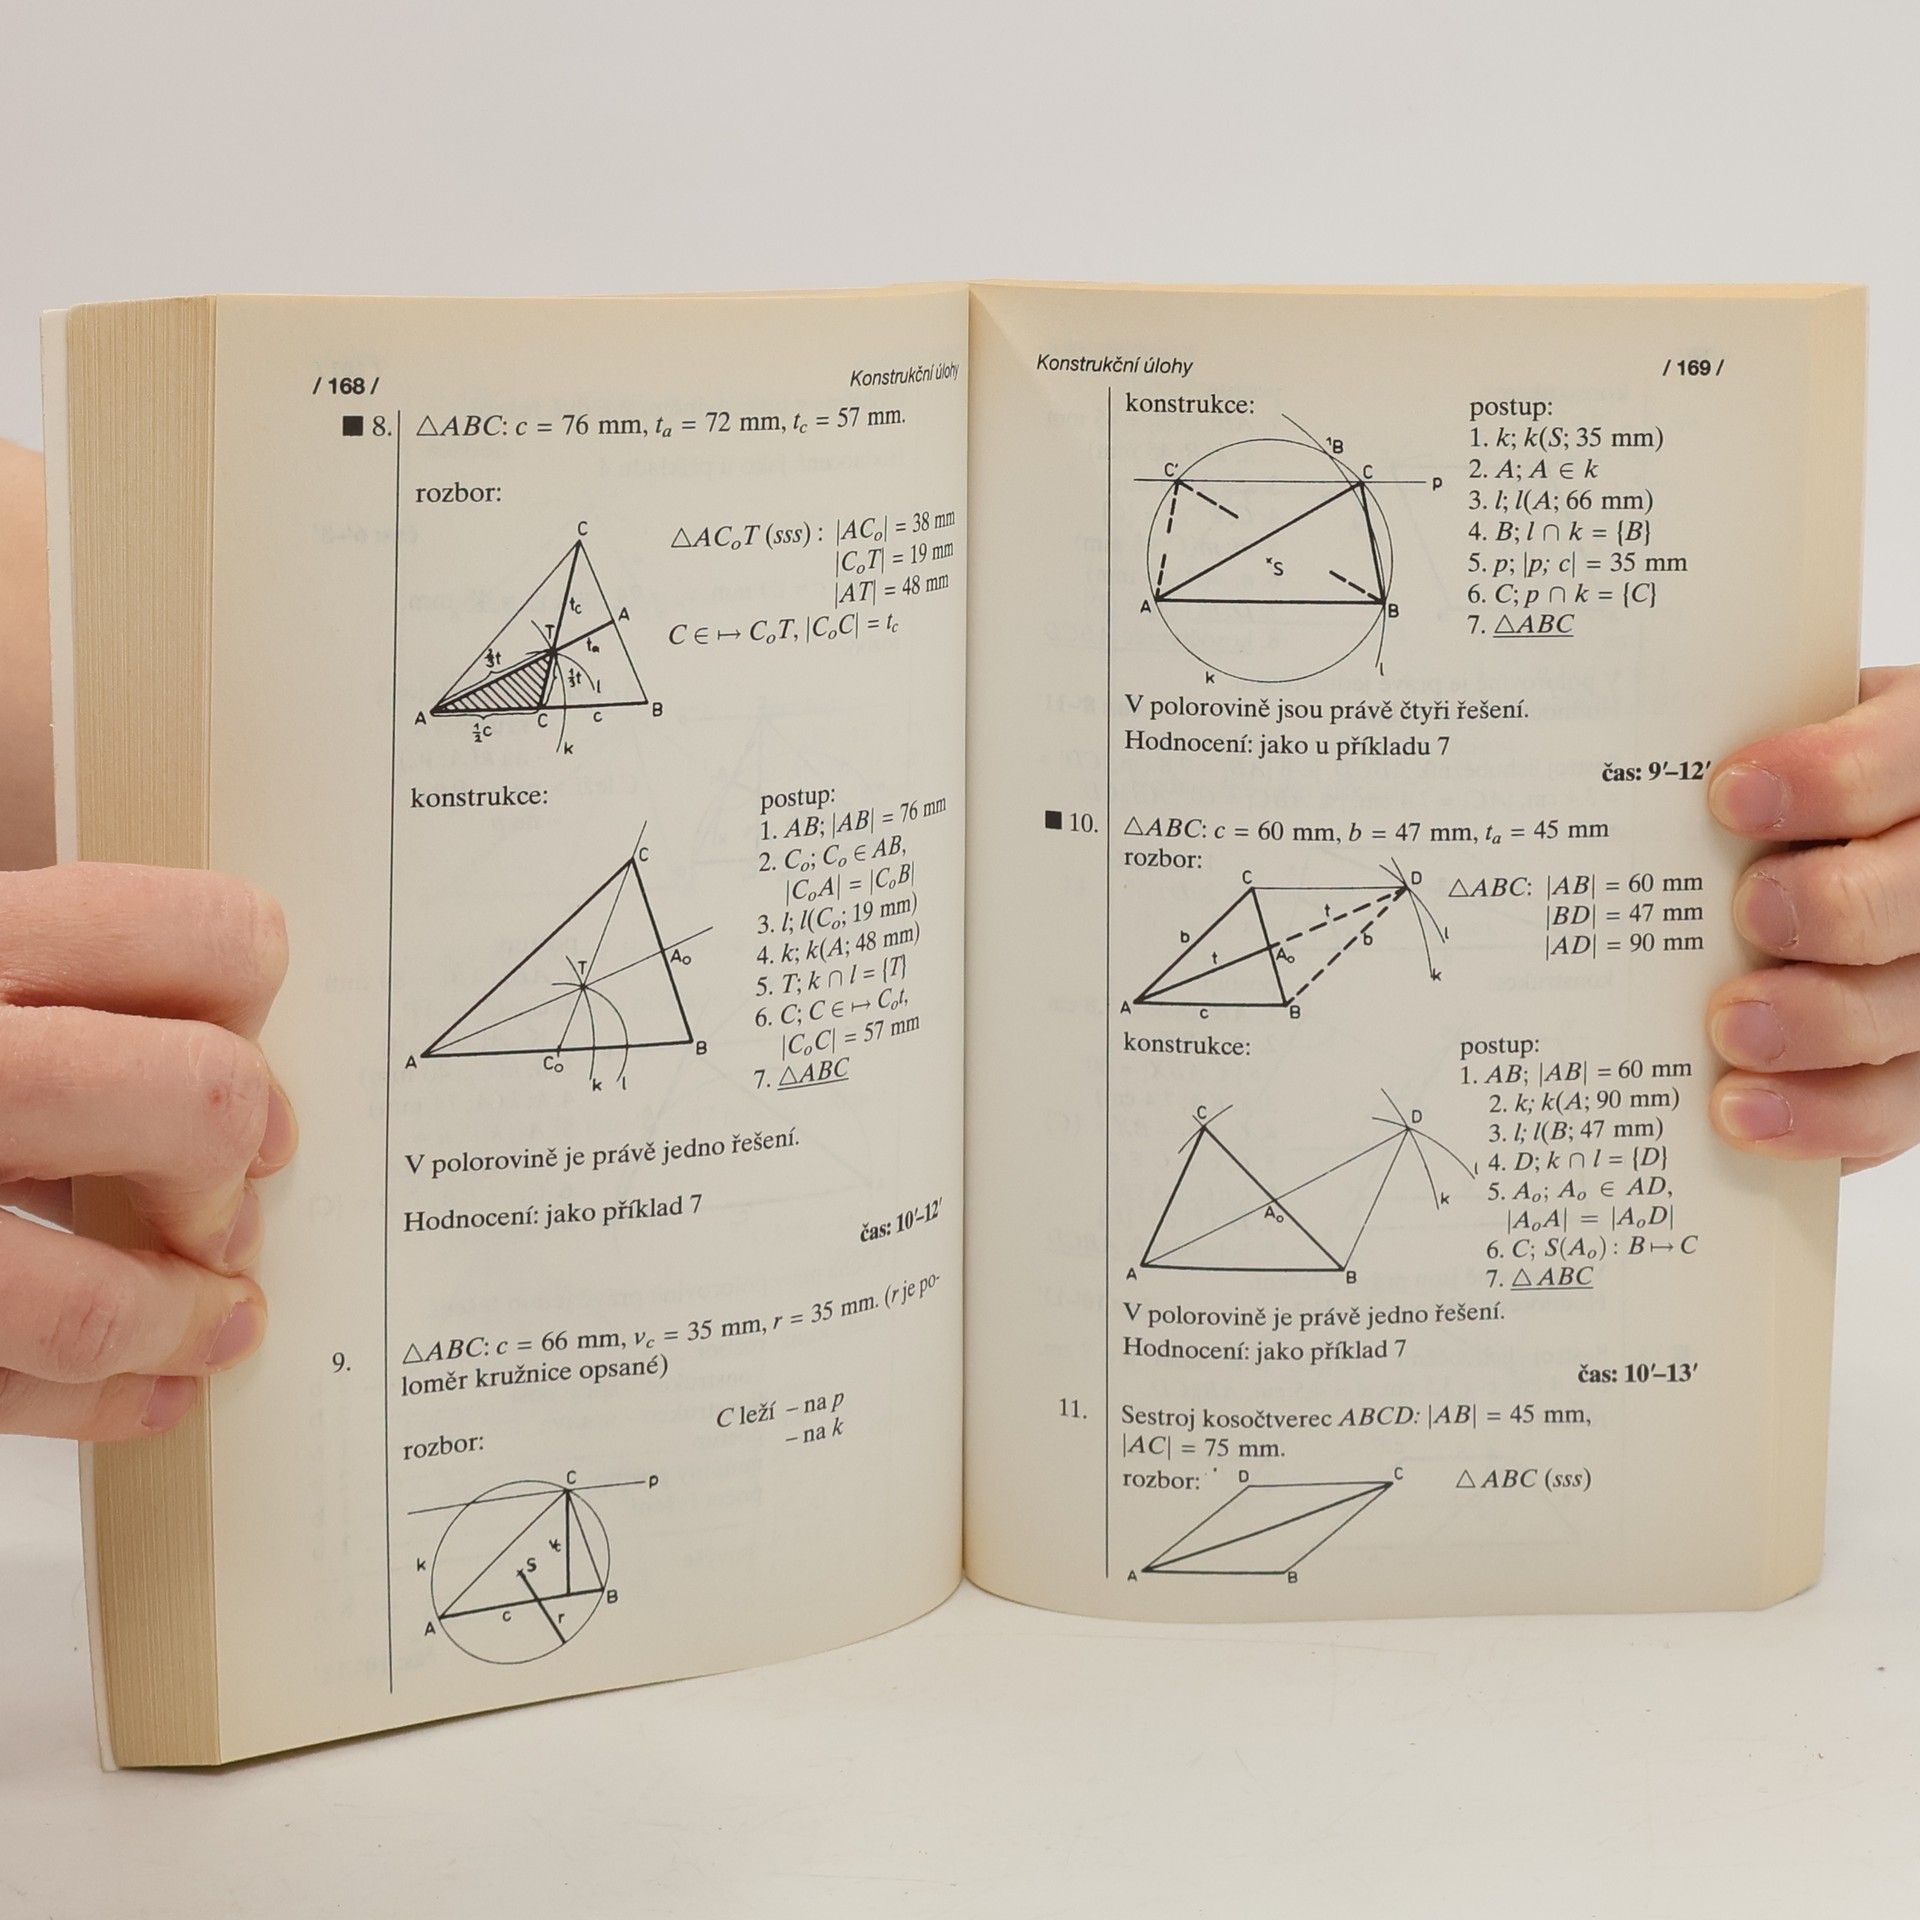 / 168 /
Konstrukční úlohy
■ 8. △ABC: c = 76 mm, tₐ = 72 mm, t_c = 57 mm.
rozbor:
△ACₒT (sss) : |ACₒ| = 38 mm
|CₒT| = 19 mm
|AT| = 48 mm
C ∈ ↦ CₒT, |CₒC| = t_c
C
t_c
A
T
tₐ
⅓t
l
A
C
c
B
½c
k
konstrukce:
postup:
1. AB; |AB| = 76 mm
2. Cₒ; Cₒ ∈ AB,
|CₒA| = |CₒB|
3. l; l(Cₒ; 19 mm)
4. k; k(A; 48 mm)
5. T; k ∩ l = {T}
6. C; C ∈ ↦ Cₒt,
|CₒC| = 57 mm
7. △ABC
C
T
Aₒ
A
Cₒ
B
k
l
V polorovině je právě jedno řešení.
Hodnocení: jako příklad 7
čas: 10′–12′
9. △ABC: c = 66 mm, v_c = 35 mm, r = 35 mm. (r je po-
loměr kružnice opsané)
C leží – na p
– na k
rozbor:
C
p
k
v_c
S
A
c
r
B
Konstrukční úlohy
/ 169 /
konstrukce:
postup:
1. k; k(S; 35 mm)
2. A; A ∈ k
3. l; l(A; 66 mm)
4. B; l ∩ k = {B}
5. p; |p; c| = 35 mm
6. C; p ∩ k = {C}
7. △ABC
¹B
C′
C
p
S
A
B
l
k
V polorovině jsou právě čtyři řešení.
Hodnocení: jako u příkladu 7
čas: 9′–12′
■ 10. △ABC: c = 60 mm, b = 47 mm, tₐ = 45 mm
rozbor:
△ABC: |AB| = 60 mm
|BD| = 47 mm
|AD| = 90 mm
C
D
b
t
l
b
t
Aₒ
k
A
c
B
konstrukce:
postup:
1. AB; |AB| = 60 mm
2. k; k(A; 90 mm)
3. l; l(B; 47 mm)
4. D; k ∩ l = {D}
5. Aₒ; Aₒ ∈ AD,
|AₒA| = |AₒD|
6. C; S(Aₒ) : B ↦ C
7. △ABC
C
D
l
k
Aₒ
A
B
V polorovině je právě jedno řešení.
Hodnocení: jako příklad 7
čas: 10′–13′
11. Sestroj kosočtverec ABCD: |AB| = 45 mm,
|AC| = 75 mm.
rozbor:
△ ABC (sss)
D
C
A
B